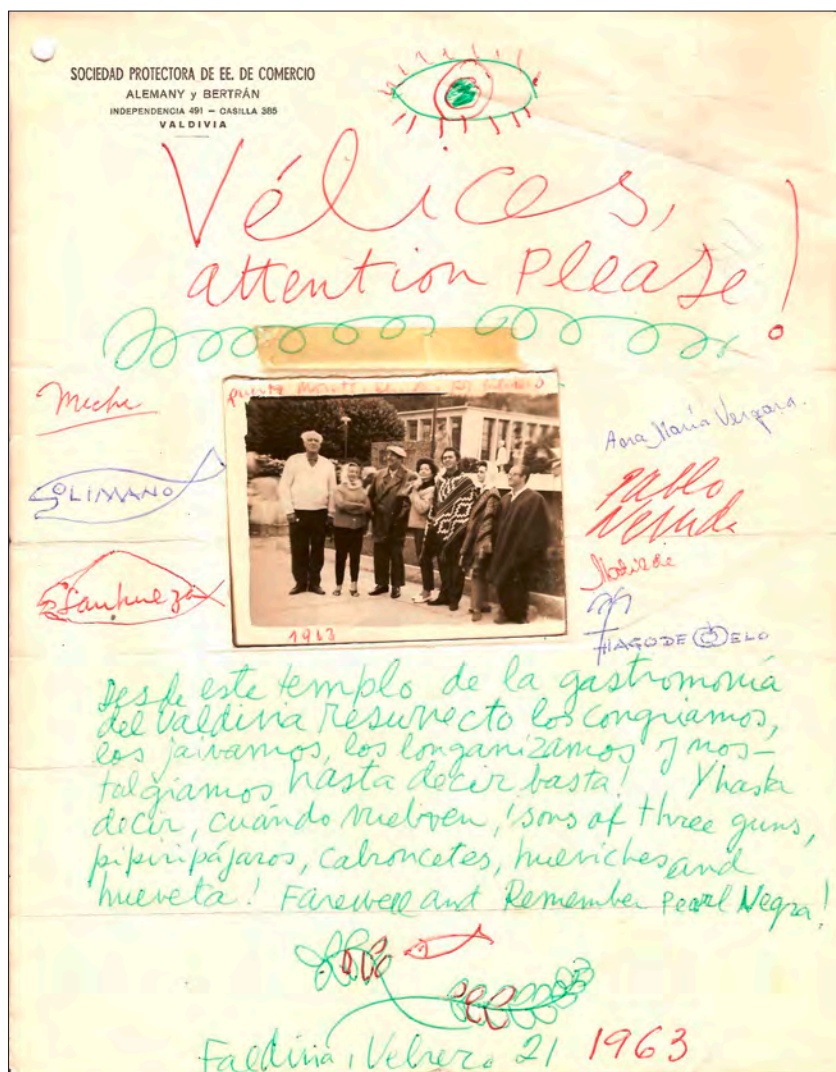 SOCIEDAD PROTECTORA DE EE. DE COMERCIO
ALEMANY y BERTRÁN
INDEPENDENCIA 491 – CASILLA 385
VALDIVIA
Vélices,
attention please!
puente
Meche
SOLIMANO
Sanhueza
Ana María Vergara.
Pablo
Neruda
Matilde
THIAGO DE MELO
1963
Desde este templo de la gastronomía
del Valdivia resurrecto los congriamos,
los jaivamos, los longanizamos y nos-
talgiamos hasta decir basta! Y hasta
decir, cuándo vuelven, sons of three guns,
pipiripájaros, cabroncetes, hueviches and
hueveta! Farewell and Remember Pearl Negra!
Faldivia, Vebrero 21 1963